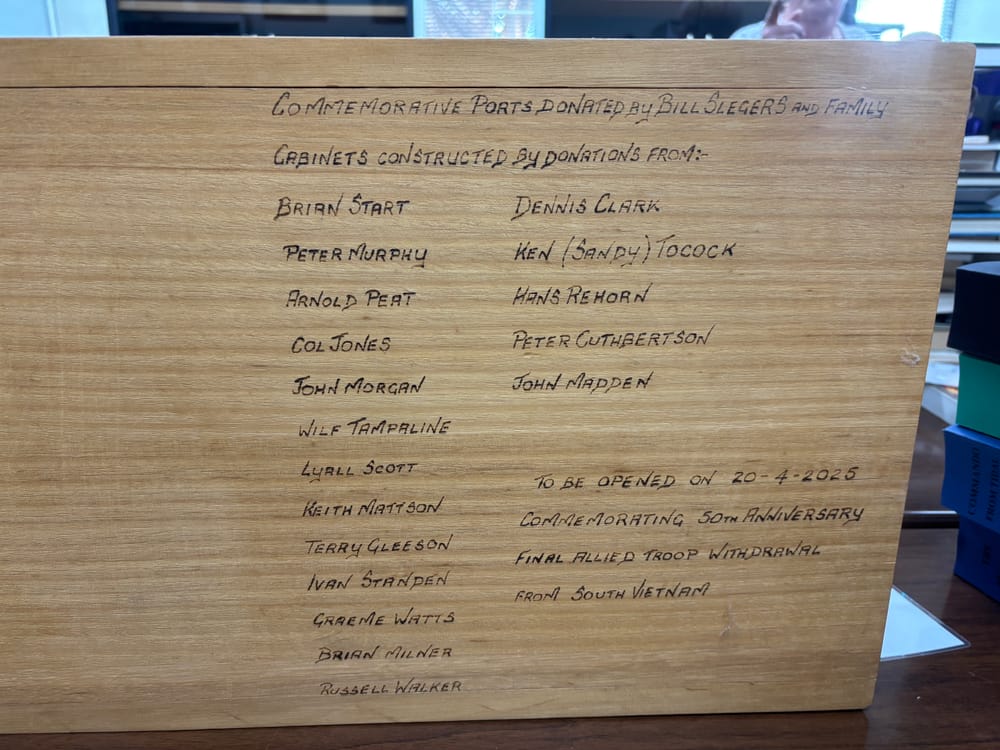 COMMEMORATIVE PORTS DONATED BY BILL SLEGERS AND FAMILY
CABINETS CONSTRUCTED BY DONATIONS FROM:-
BRIAN START
PETER MURPHY
ARNOLD PEAT
COL JONES
JOHN MORGAN
WILF TAMPALINE
LYALL SCOTT
KEITH MATTSON
TERRY GLEESON
IVAN STANDEN
GRAEME WATTS
BRIAN MILNER
RUSSELL WALKER
DENNIS CLARK
KEN (SANDY) TOCOCK
HANS REHORN
PETER CUTHBERTSON
JOHN MADDEN
TO BE OPENED ON 20-4-2025
COMMEMORATING 50TH ANNIVERSARY
FINAL ALLIED TROOP WITHDRAWAL
FROM SOUTH VIETNAM
COMMANDO